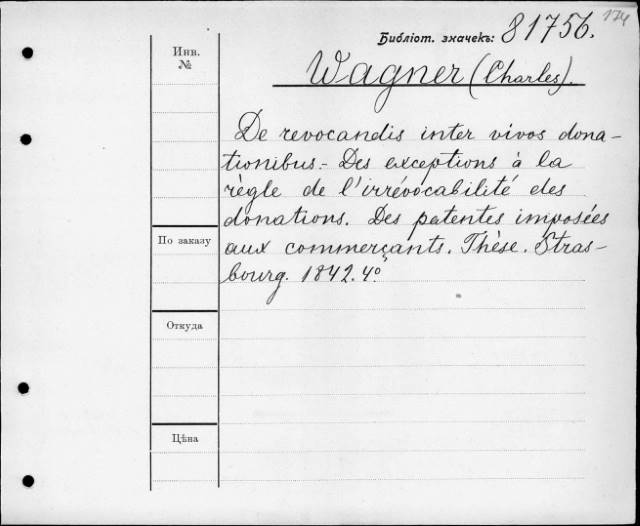 174
Библіот. значекъ: 81756.
Инв.
№
Wagner (Charles).
De revocandis inter vivos dona-
tionibus.- Des exceptions à la
règle de l'irrévocabilité des
donations. Des patentes imposées
По заказу
aux commerçants. Thèse. Stras-
bourg. 1842. 4º.
Откуда
Цѣна